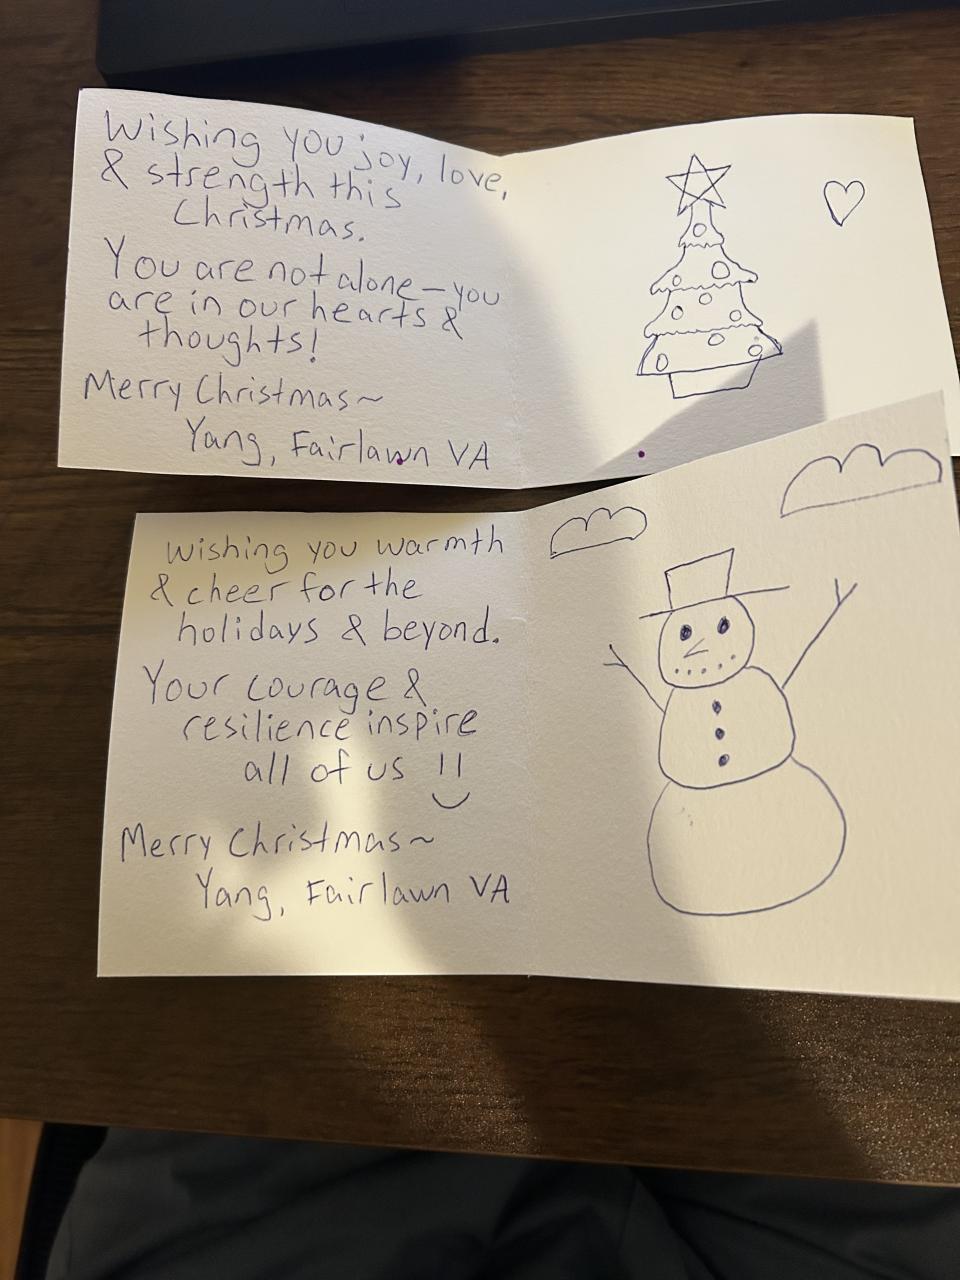 Wishing you joy, love,
& strength this
Christmas.
You are not alone—you
are in our hearts &
thoughts!
Merry Christmas~
Yang, Fairlawn VA
Wishing you warmth
& cheer for the
holidays & beyond.
Your courage &
resilience inspire
all of us !!
Merry Christmas~
Yang, Fairlawn VA